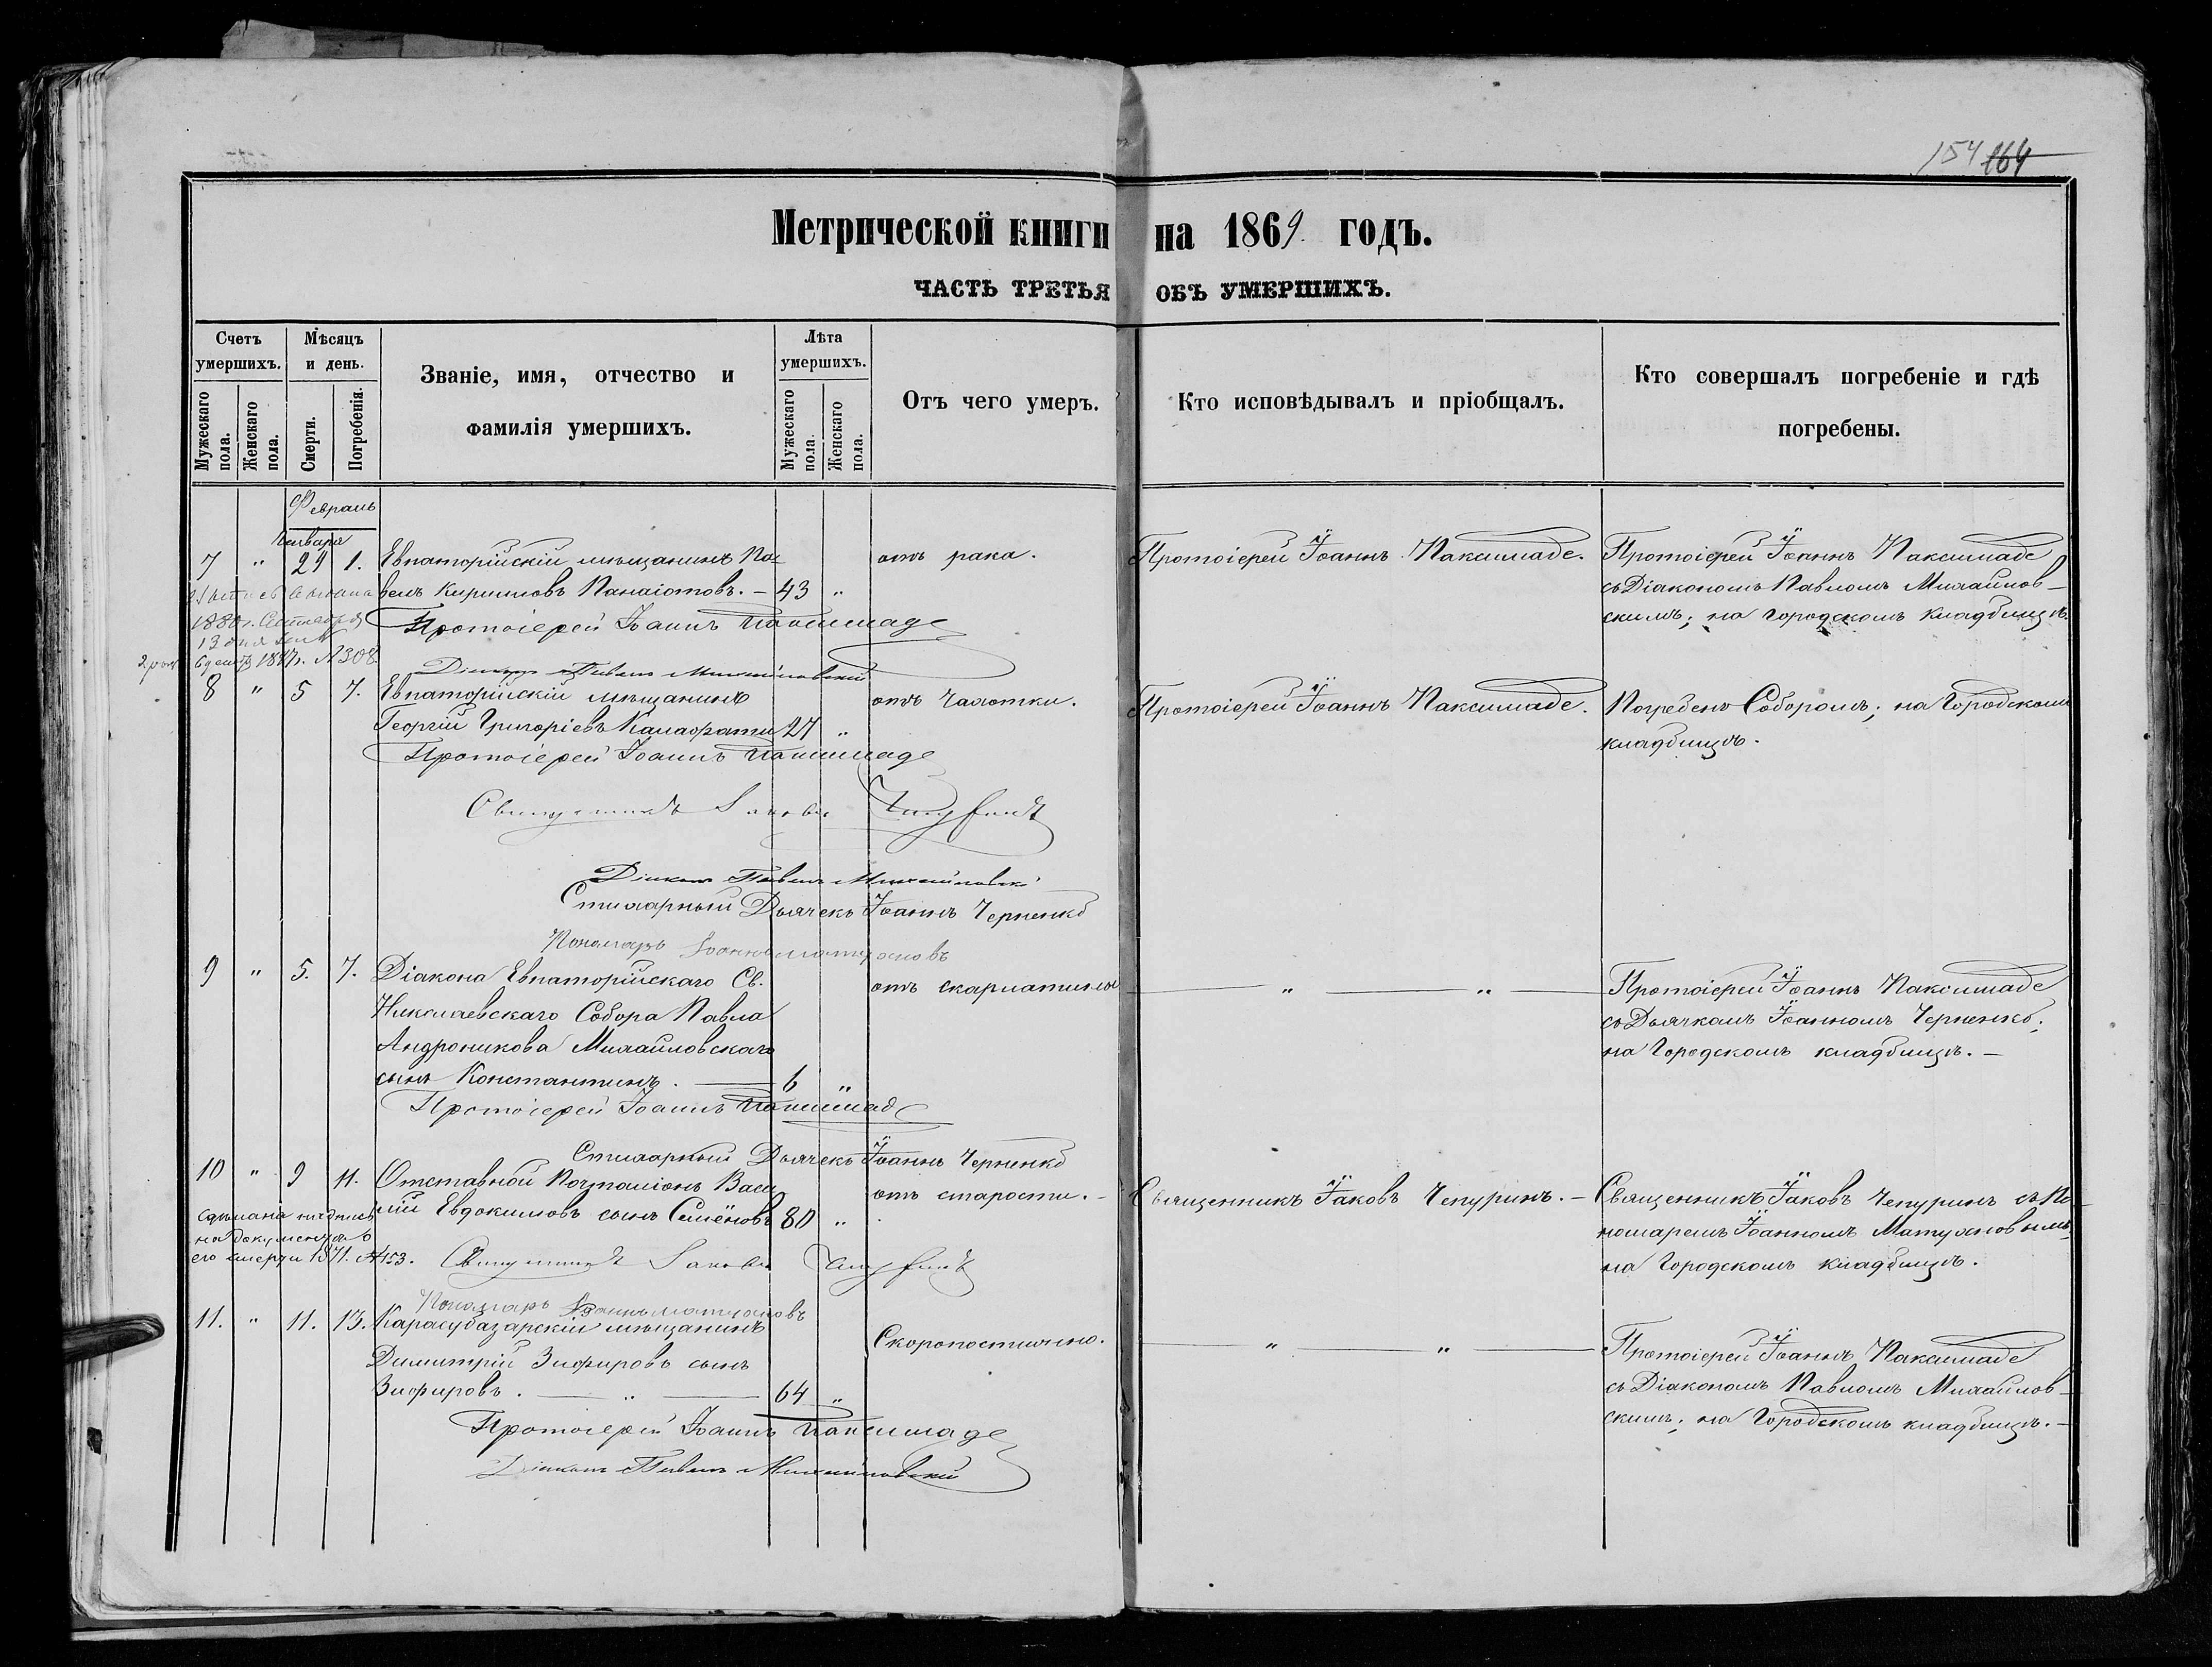 154 164
Метрической книги на 1869 годъ.
ЧАСТЬ ТРЕТЬЯ ОБЪ УМЕРШИХЪ.
Счетъ умершихъ.
Мужескаго пола.
Женскаго пола.
Мѣсяцъ и день.
Смерти.
Погребенія.
Званіе, имя, отчество и
фамилія умершихъ.
Лѣта умершихъ.
Мужескаго пола.
Женскаго пола.
Отъ чего умеръ.
Кто исповѣдывалъ и пріобщалъ.
Кто совершалъ погребеніе и гдѣ
погребены.
Февраль
Января
7 " 29 1. Евпаторійскій мѣщанинъ Па- отъ рака. Протоіерей Іоаннъ Паксимаде. Протоіерей Іоаннъ Паксимаде
велъ Кирилловъ Панаіотовъ. — 43 " съ Діакономъ Павломъ Михайлов-
1880 г. Сентября
13 дня
Протоіерей Іоаннъ Паксимаде скимъ; на Городскомъ кладбищѣ.
№ 308
Діаконъ Павелъ Михайловскій
8 " 5 7. Евпаторійскій мѣщанинъ отъ чахотки. Протоіерей Іоаннъ Паксимаде. Погребенъ Соборомъ; на Городскомъ
Георгій Григоріевъ Калафати 27 " кладбищѣ.
Протоіерей Іоаннъ Паксимаде
Священникъ Іаковъ Чепуринъ
Діаконъ Павелъ Михайловскій
Стихарный Дьячекъ Іоаннъ Черненко
Пономарь Іоаннъ Матухновъ
9 " 5. 7. Діакона Евпаторійскаго Св. отъ скарлатины — " — " — Протоіерей Іоаннъ Паксимаде
Николаевскаго Собора Павла съ Дьячкомъ Іоанномъ Черненко;
Андроникова Михайловскаго на Городскомъ кладбищѣ. —
сынъ Константинъ. — 6 "
Протоіерей Іоаннъ Паксимаде
Стихарный Дьячекъ Іоаннъ Черненко
10 " 9 11. Отставной Почталіонъ Васи отъ старости. — Священникъ Іаковъ Чепуринъ. — Священникъ Іаковъ Чепуринъ съ По
лій Евдокимовъ сынъ Семёновъ 80 " номаремъ Іоанномъ Матухновымъ,
сдѣлана надпись
на документѣ о
его смерти 1871. №153. Священникъ Іаковъ Чепуринъ на Городскомъ кладбищѣ.
Пономарь Іоаннъ Матухновъ
11. " 11. 13. Карасубазарскій мѣщанинъ Скоропостижно. — " — " — Протоіерей Іоаннъ Паксимаде
Димитрій Зифировъ сынъ съ Діакономъ Павломъ Михайлов-
Зифировъ. — " — 64 " скимъ; на Городскомъ кладбищѣ. —
Протоіерей Іоаннъ Паксимаде
Діаконъ Павелъ Михайловскій